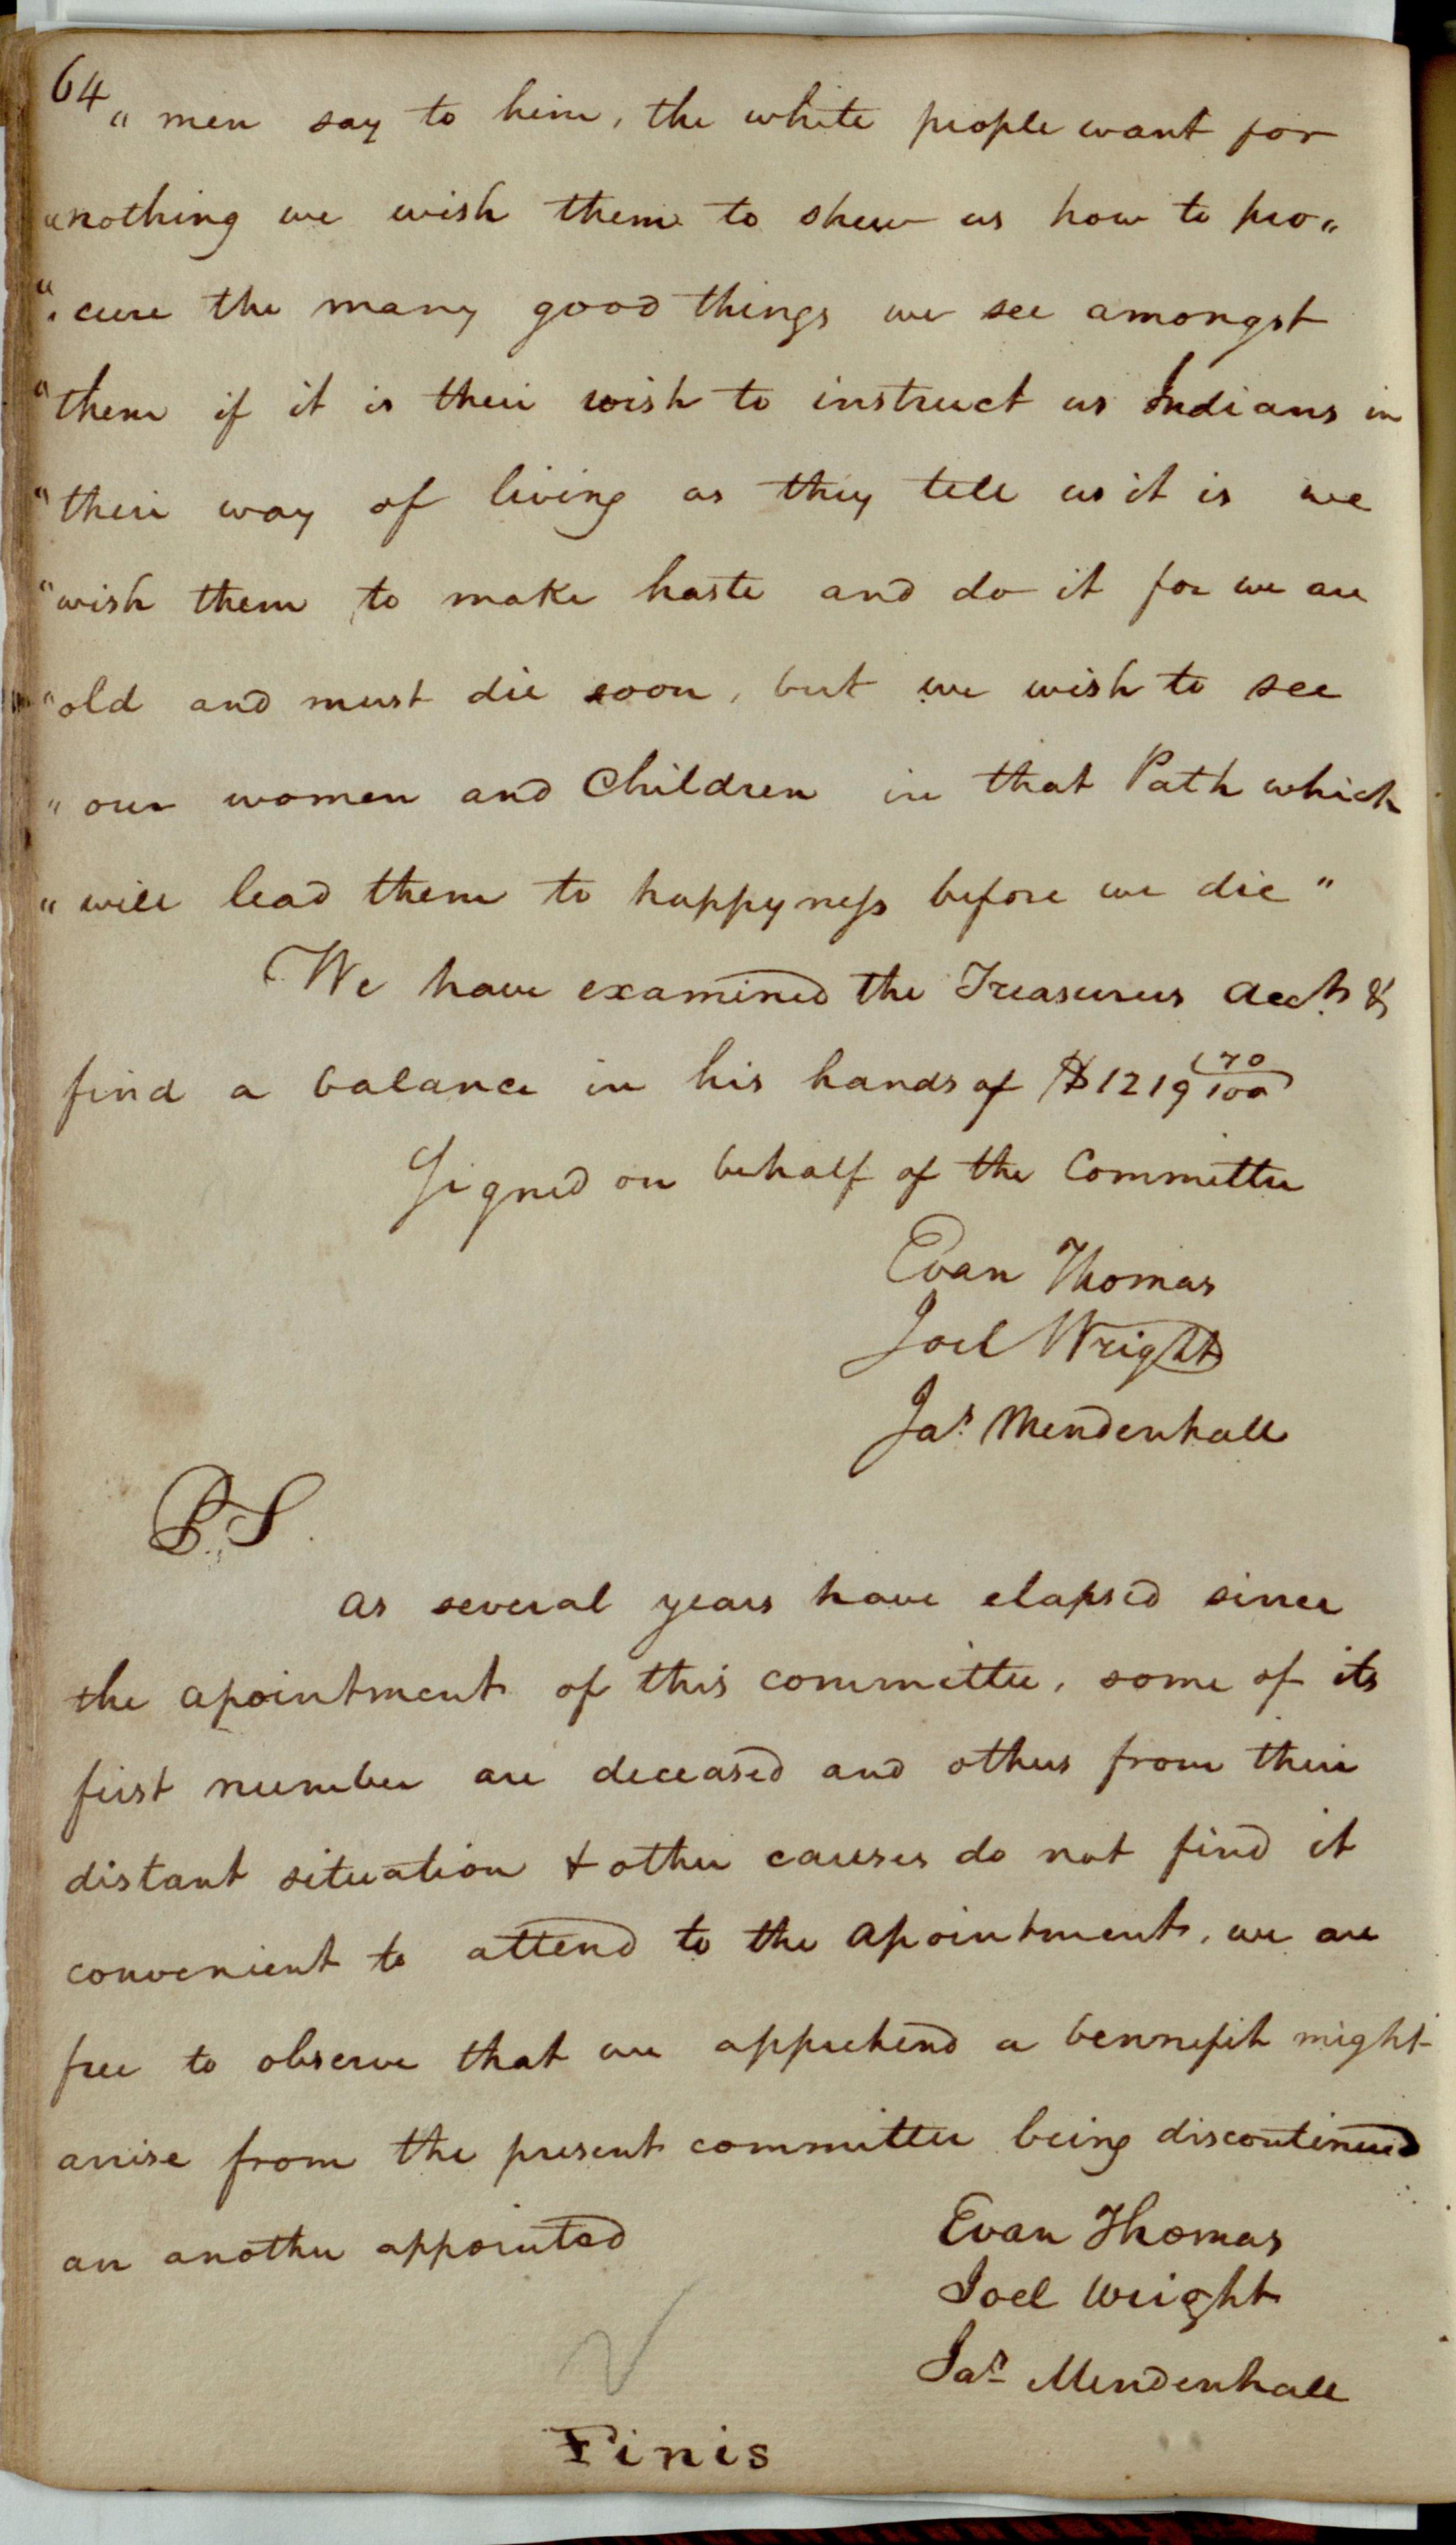 64
" men say to him, the white people want for
" nothing we wish them to shew us how to pro"
" cure the many good things we see amongst
" them if it is their wish to instruct us Indians in
" their way of living as they tell us it is we
" wish them to make haste and do it for we are
" old and must die soon, but we wish to see
" our women and Children in that Path which
" will lead them to happyness before we die "
We have examined the Treasurers Accts. &
find a balance in his hands of $1219 70/100
Signed on behalf of the Committee
Evan Thomas
Joel Wright
Jas. Mendenhall
P.S.
as several years have elapsed since
the apointment of this committee, some of its
first number are deceased and others from their
distant situation & other causes do not find it
convenient to attend to the apointment, we are
free to observe that we apprehend a bennefit might
arise from the present committee being discontinued
an another appointed
Evan Thomas
Joel Wright
Jas. Mendenhall
Finis